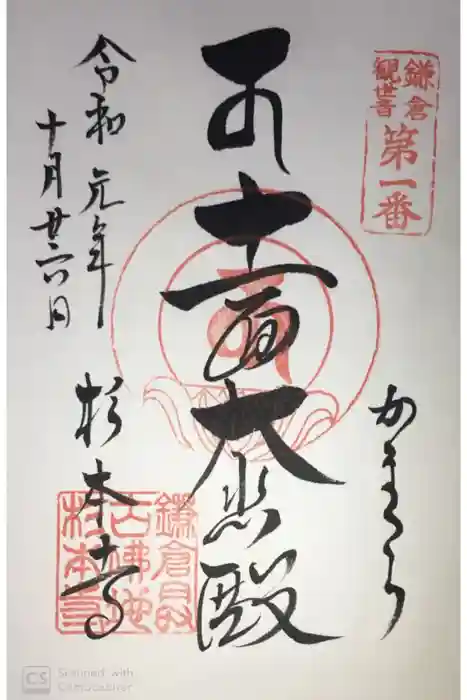 鎌倉
観世音
第一番
かまくら
十一面大悲殿
令和元年
十月廿六日
杉本寺
鎌倉最
古佛地
杉本寺
CS Scanned with
CamScanner